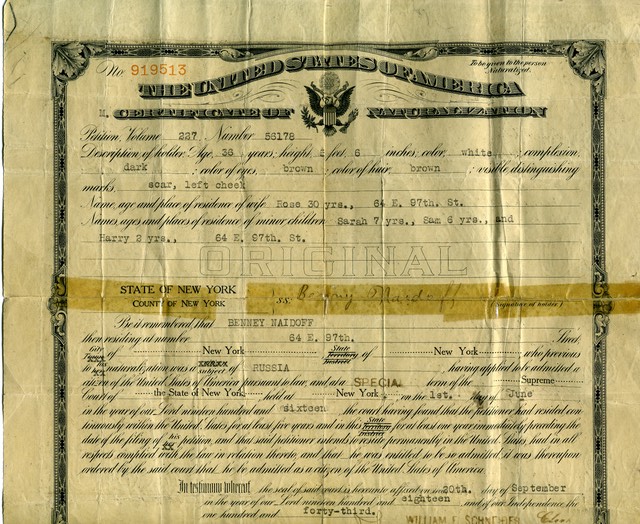 No. 919513
To be given to the person Naturalized.
THE UNITED STATES OF AMERICA
CERTIFICATE OF NATURALIZATION
Petition, Volume 227 Number 56178
Description of holder: Age, 36 years; height, 5 feet, 6 inches; color, white; complexion,
dark; color of eyes, brown; color of hair, brown; visible distinguishing
marks, scar, left cheek
Name, age and place of residence of wife Rose 30 yrs., 64 E. 97th. St.
Names, ages and places of residence of minor children Sarah 7 yrs., Sam 6 yrs., and
Harry 2 yrs., 64 E. 97th. St.
ORIGINAL
STATE OF NEW YORK
COUNTY OF NEW YORK
ss: Benney Naidoff
(Signature of holder)
Be it remembered, that BENNEY NAIDOFF
then residing at number 64 E. 97th. Street,
City of New York State of New York, who previous
to his naturalization was a subject of RUSSIA, having applied to be admitted a
citizen of the United States of America pursuant to law, and at a SPECIAL term of the Supreme
Court of the State of New York held at New York, on the 1st. day of June
in the year of our Lord nineteen hundred and sixteen the court having found that the petitioner had resided con-
tinuously within the United States for at least five years and in this State for at least one year immediately preceding the
date of the filing of his petition, and that said petitioner intends to reside permanently in the United States, had in all
respects complied with the law in relation thereto, and that he was entitled to be so admitted, it was thereupon
ordered by the said court that he be admitted as a citizen of the United States of America.
In testimony whereof the seal of said court is hereunto affixed on the 20th. day of September
in the year of our Lord nineteen hundred and eighteen and of our Independence the
one hundred and forty-third.
WILLIAM F. SCHNEIDER